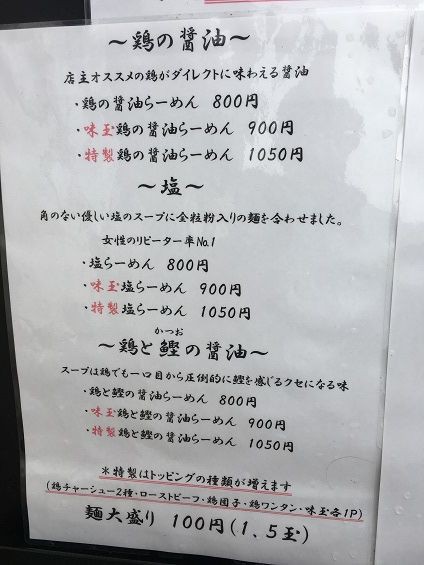 ～鶏の醤油～
店主オススメの鶏がダイレクトに味わえる醤油
・鶏の醤油らーめん 800円
・味玉鶏の醤油らーめん 900円
・特製鶏の醤油らーめん 1050円
～塩～
角のない優しい塩のスープに全粒粉入りの麺を合わせました。
女性のリピーター率No.1
・塩らーめん 800円
・味玉塩らーめん 900円
・特製塩らーめん 1050円
かつお
～鶏と鰹の醤油～
スープは鶏でも一口目から圧倒的に鰹を感じるクセになる味
・鶏と鰹の醤油らーめん 800円
・味玉鶏と鰹の醤油らーめん 900円
・特製鶏と鰹の醤油らーめん 1050円
＊特製はトッピングの種類が増えます
（鶏チャーシュー2種・ローストビーフ・鶏団子・鶏ワンタン・味玉各1P）
麺大盛り 100円（1.5玉）